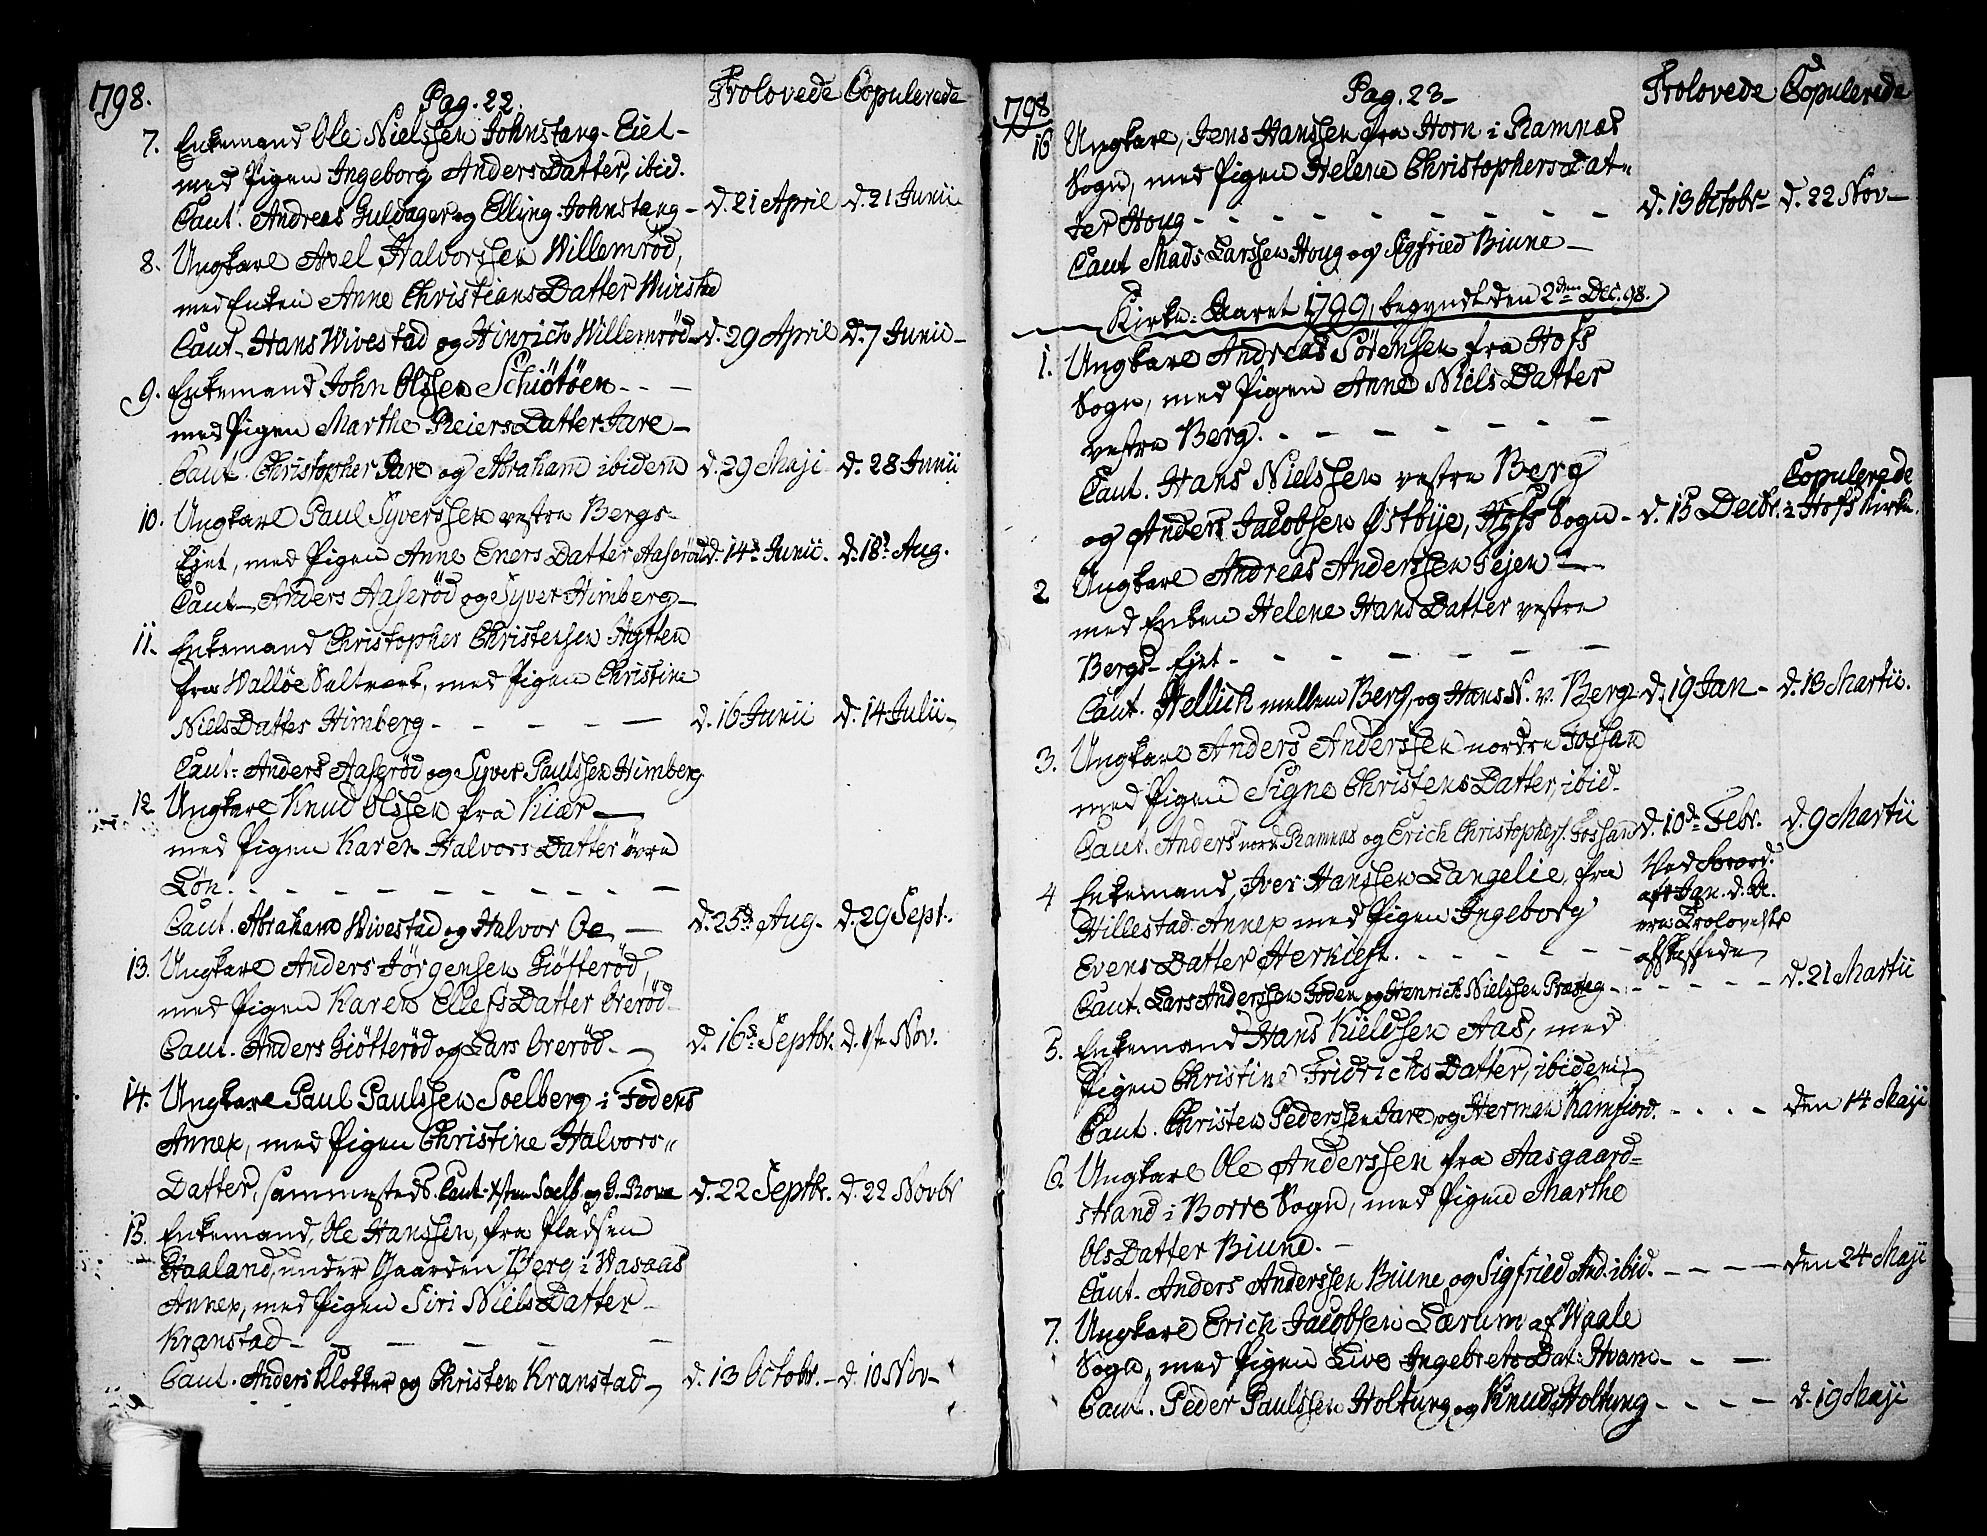 1798.
Pag. 22.
Trolovede Copulerede
7. Enkemand Ole Nielssen Johnstang-Eiet-
med Pigen Ingeborg AndersDatter, ibid.
Caut. Andreas Guldager og Elling Johnstang- d. 21 April d. 21 Junii
8. Ungkarl Axel Halvorssen Willemröd,
med Enken Anne ChristiansDatter Wivestad
Caut. Hans Wivestad og Hinrich Willemröd- d. 29 April d. 7 Junii-
9. Enkemand John Olssen Schiötöen - - -
med Pigen Marthe ReiersDatter Jare-
Caut. Christopher Jare og Abraham ibidem d. 29 Maji d. 28 Junii
10. Ungkarl Paul Syverssen vestre Bergs-
Ejet, med Pigen Anne EnersDatter Aaseröd d. 14d Junii. d. 18d Aug.
Caut. Anders Aaseröd og Syver Himberg-
11. Enkemand Christopher Christensen Hytten
fra Walløe Saltverk, med Pigen Christine
NielsDatter Himberg - - - - - d. 16 Junii d. 14 Julii-
Caut. Anders Aaseröd og Syver Paulssen Himberg
12. Ungkarl Knud Olssen fra Kiær-
med Pigen Karen HalvorsDatter övre
Lön. - - - - - - - - - -
Caut. Abraham Wivestad og Halvor Oe - d. 25d Aug. d. 29 Sept.
13. Ungkarl Anders Jörgensen Giötteröd,
med Pigen Karen EllefsDatter Oreröd
Caut. Anders Giötteröd og Lars Oreröd. - d. 16d Septbr. d. 1ste Nov.
14. Ungkarl Paul Paulssen Soelberg i Fodens
Annex, med Pigen Christine Halvors-
Datter, sammesteds. Caut. Xsten Soelb. og G. Rove d. 22 Septbr. d. 22 Novbr
15. Enkemand, Ole Hanssen, fra Pladsen
Haaland, under Gaarden Berg i Wasaas
Annex, med Pigen Siri NielsDatter
Kranstad - - - - -
Caut. Anders Klokker og Christen Kranstad- d. 13 Octobr. - d. 10 Nov-
1798
Pag. 23-
Trolovede Copulerede
16 Ungkarl, Jens Hanssen fra Horn i Ramnæs
Sogn, med Pigen Helene ChristophersDat-
ter Houg - - - - - - - - - d. 13 Octobr- d. 22 Nov-
Caut Mads Larssen Houg og Sigfried Biune-
Kirke-Aaret 1799, begyndt den 2den Dec. 98.
1. Ungkarl Andreas Sörensen fra Hofs
Sogn, med Pigen Anne NielsDatter
vestre Berg. - - - - - -
Caut. Hans Nielssen vestre Berg
og Anders Jacobsen Östbye, Hofs Sogn- d. 15 Decbr. Copulerede i Hofs Kirke.
2 Ungkarl Andreas Anderssen
med Enken Helene HansDatter vestre
Bergs-Ejet - - - - - -
Caut. Hellich mellem Berg, og Hans N. v. Berg- d. 19 Jan- d. 13 Martii.
3. Ungkarl Anders Anderssen nordre Fossan
med Pigen Signe ChristensDatter, ibid.
Caut. Anders nord. Ramnas og Erich Christophers. Fossan d. 10de Febr. d. 9 Martii
4 Enkemand, Iver Hanssen Langelie, fra
Hillestad Annex med Pigen Ingeborg
EvensDatter Herkiest. - - - - -
Ved Forord.
af 4 Jan. d. A.
ere Trolovelse
afskaffede
Caut. Lars Anderssen Foden og Henrich Nielssen Præsteg - - - - - d. 21 Martii
5. Enkemand Hans Kieldsen Aas, med
Pigen Christine FridrichsDatter, ibidem
Caut. Christen Pederssen Jare og Herman Kamfiord. - - - - den 14 Maji
6. Ungkarl Ole Anderssen fra Aasgaard-
strand i Borre Sogn, med Pigen Marthe
OlsDatter Biune. -
Caut. Anders Anderssen Biune og Sigfried And. ibid. - - - - den 24 Maji
7. Ungkarl Erich Jacobsen Lærum af Waale
Sogn, med Pigen Live IngebretsDat: Hvam- - -
Caut. Peder Paulssen Holtung og Knud Holtung - - - - d. 19 Maji